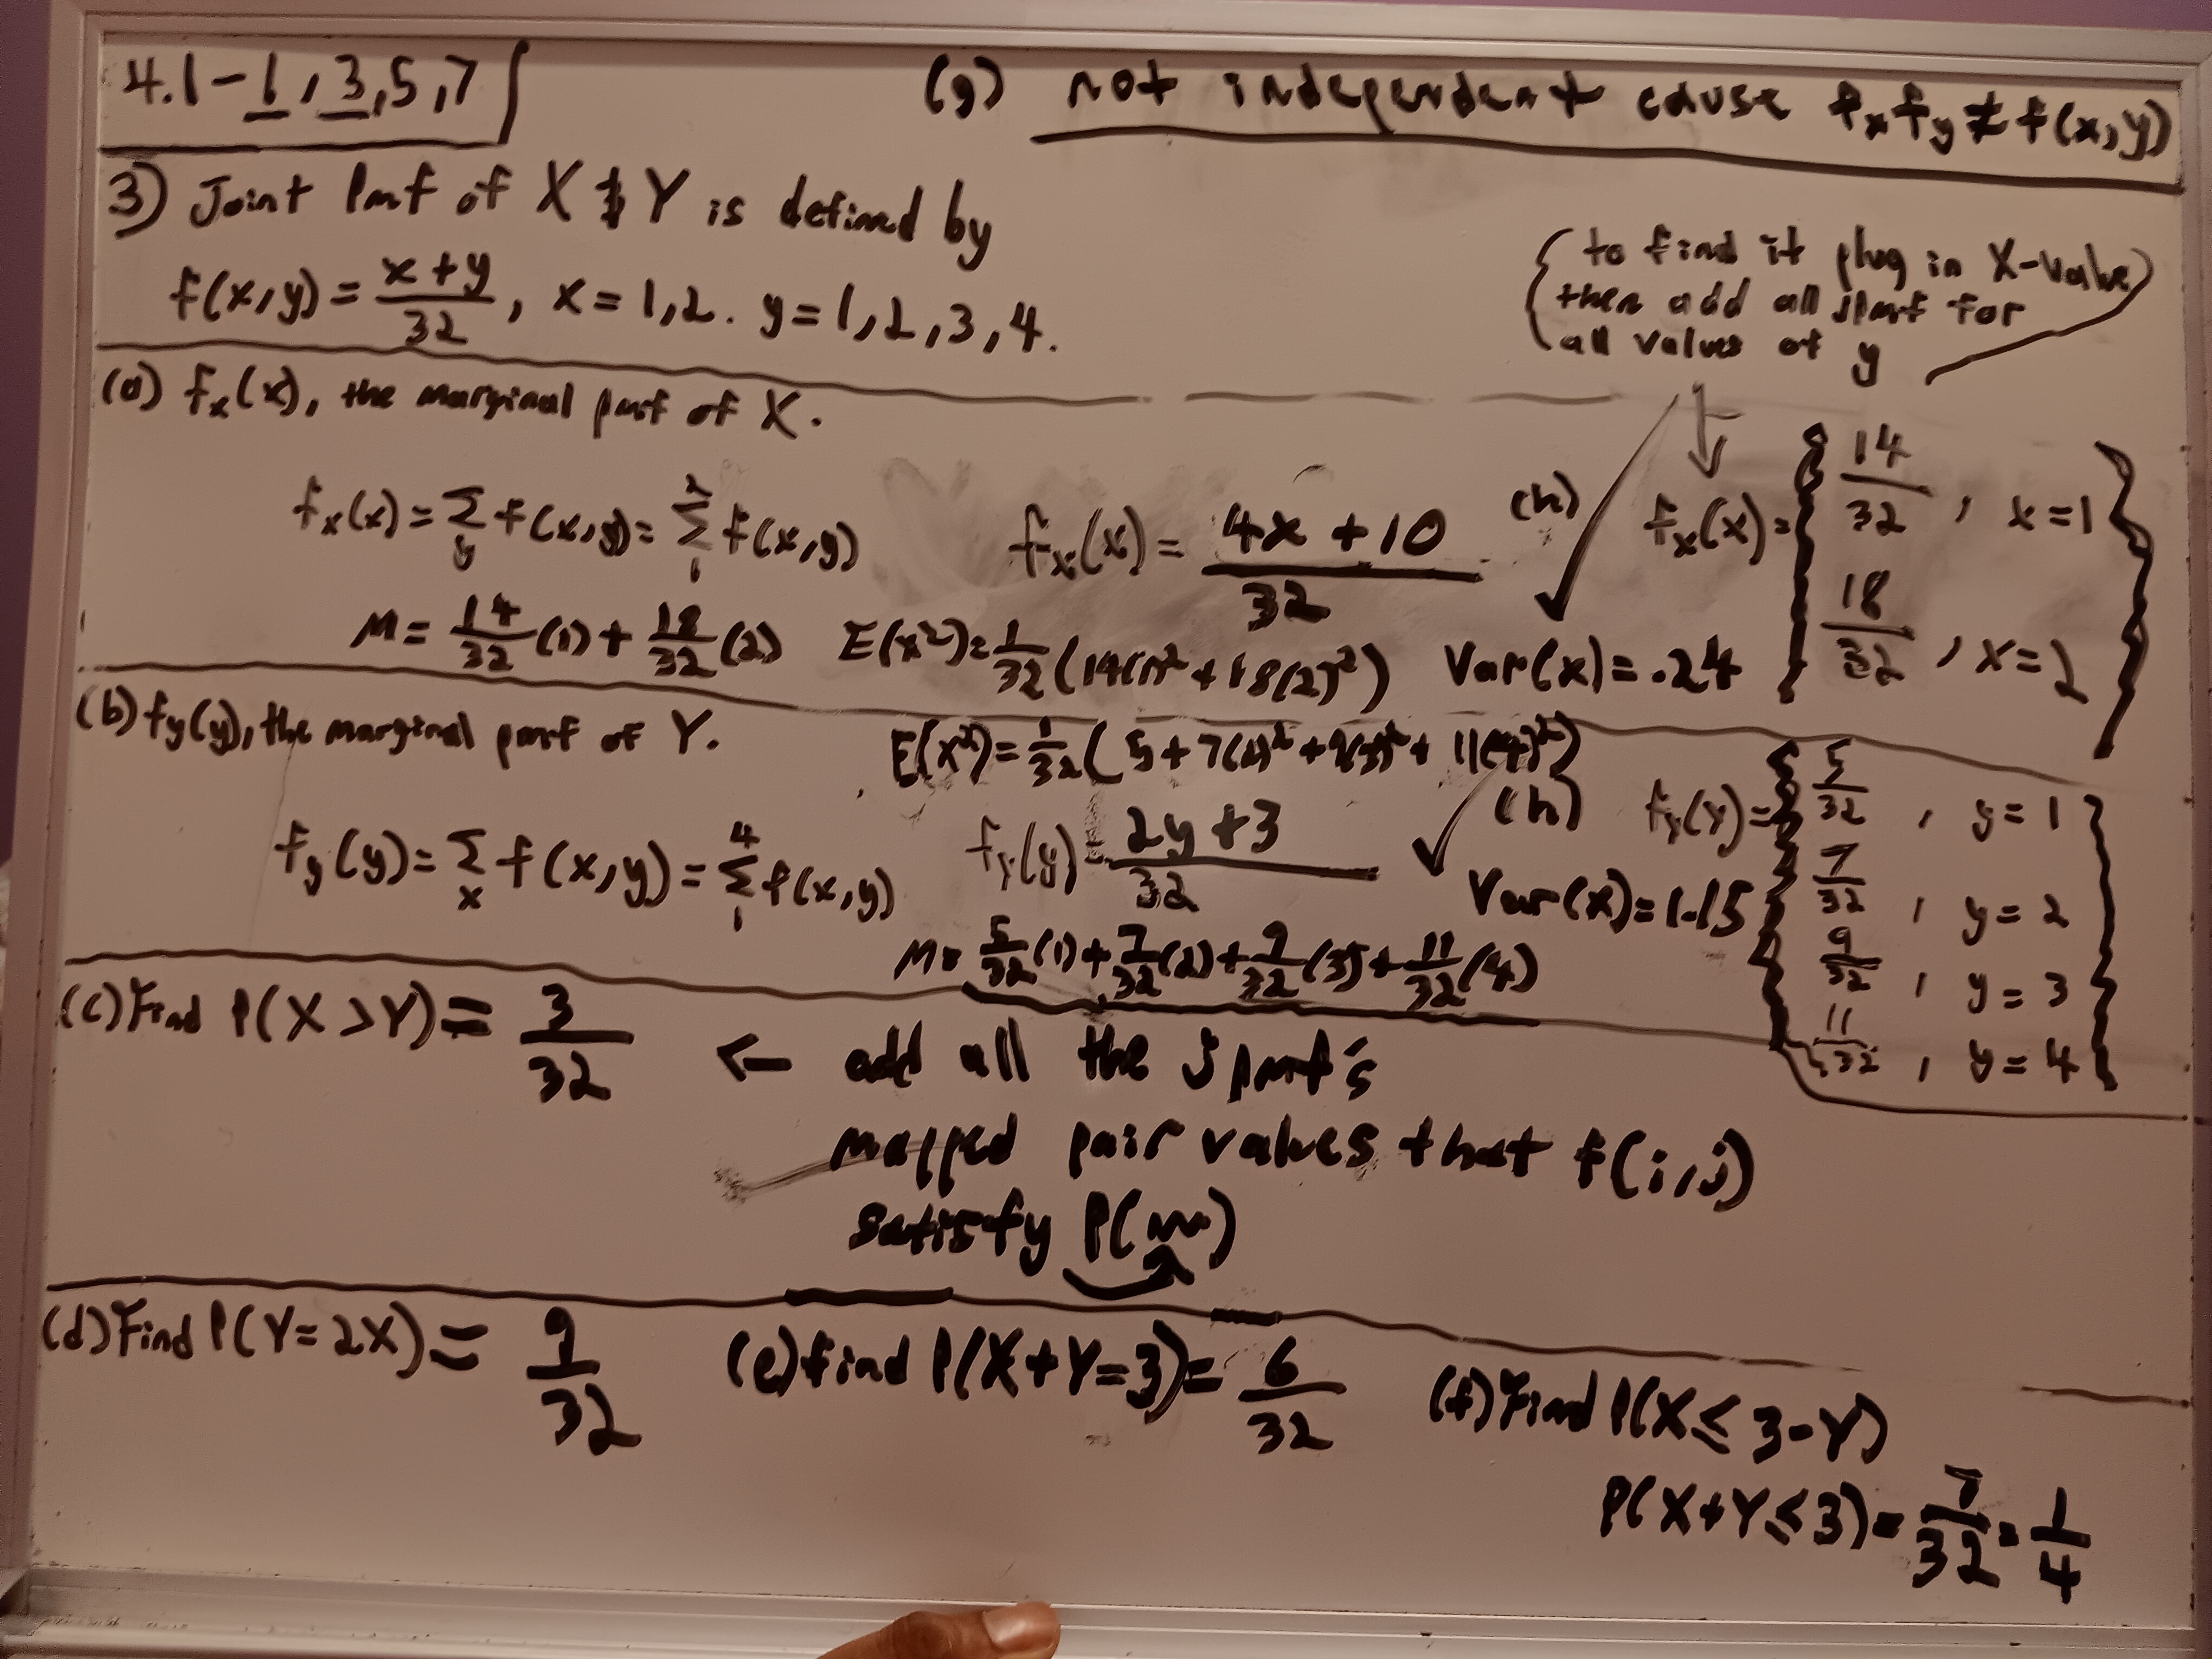 4.1-1,3,5,7
(g) not independent cause fₓf_y ≠ f(x,y)
3) Joint Pmf of X & Y is defined by
f(x,y) = x+y/32, x=1,2. y=1,2,3,4.
{to find it plug in X-value
then add all jpmf for
all values of y
(a) fₓ(x), the marginal pmf of X.
fₓ(x) = Σ_y f(x,y) = Σ₁² f(x,y)
fₓ(x) = 4x+10/32
(h)
fₓ(x) = { 14/32, x=1
18/32, x=2 }
M = 14/32(1) + 18/32(2) E(x²) = 1/32(14(1)² + 18(2)²) Var(x) = .24
(b) f_y(y), the marginal pmf of Y.
E(x²) = 1/32(5 + 7(2)² + 9(3)² + 11(4)²)
f_y(y) = Σₓ f(x,y) = Σ₁⁴ f(x,y)
f_y(y) = 2y+3/32
(h)
Var(x) = 1.15
f_y(y) = { 5/32, y=1
7/32, y=2
9/32, y=3
11/32, y=4 }
M = 5/32(1) + 7/32(2) + 9/32(3) + 11/32(4)
(c) Find P(X>Y) = 3/32
← add all the jpmf's
mapped pair values that f(i,j)
satisfy P(    )
(d) Find P(Y=2X) = 9/32
(e) find P(X+Y=3) = 6/32
(f) Find P(X ≤ 3-Y)
P(X+Y≤3) = 7/32 = 1/4